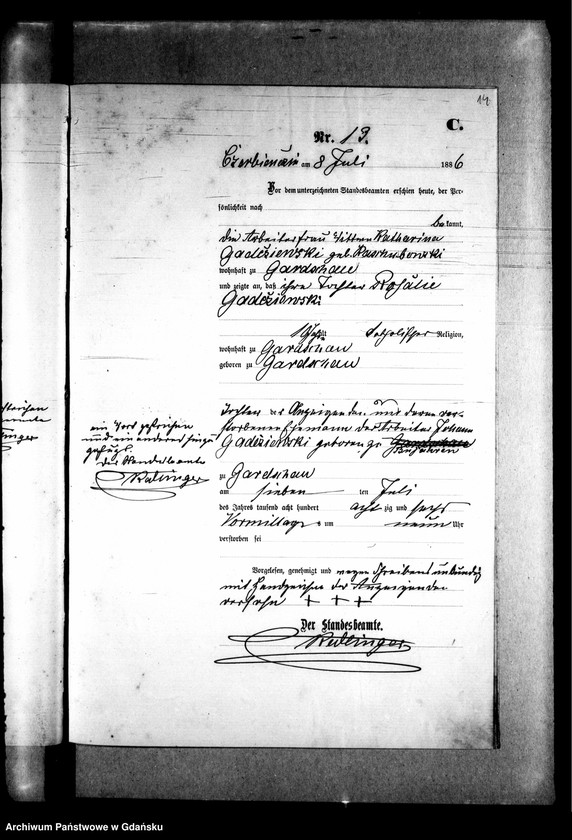 14
C.
Nr. 13.
Czerbienczin am 8 Juli 1886
Vor dem unterzeichneten Standesbeamten erschien heute, der Per-
sönlichkeit nach
bekannt,
die Arbeiterfrau Wittwe Katharina
Gadeziewski geb.
wohnhaft zu Gardschau
und zeigte an, daß ihre Tochter Rosalie
Gadeziewski
alt katholischer Religion,
wohnhaft zu Gardschau
geboren zu Gardschau
Tochter der Anzeigenden und deren ver-
storbenen Ehemann des Arbeiter Johann
Gadeziewski geboren zu Gardschau
zu Gardschau
am sieben ten Juli
des Jahres tausend acht hundert achtzig und sechs
Vormittags um neun Uhr
verstorben sei
Vorgelesen, genehmigt und wegen Schreibens unkundig
mit Handzeichen der Anzeigenden
versehen + + +
Der Standesbeamte.
ein Wort gestrichen
und ein anderes hinzu
gefügt.
Der Standesbeamte
Archiwum Państwowe w Gdańsku